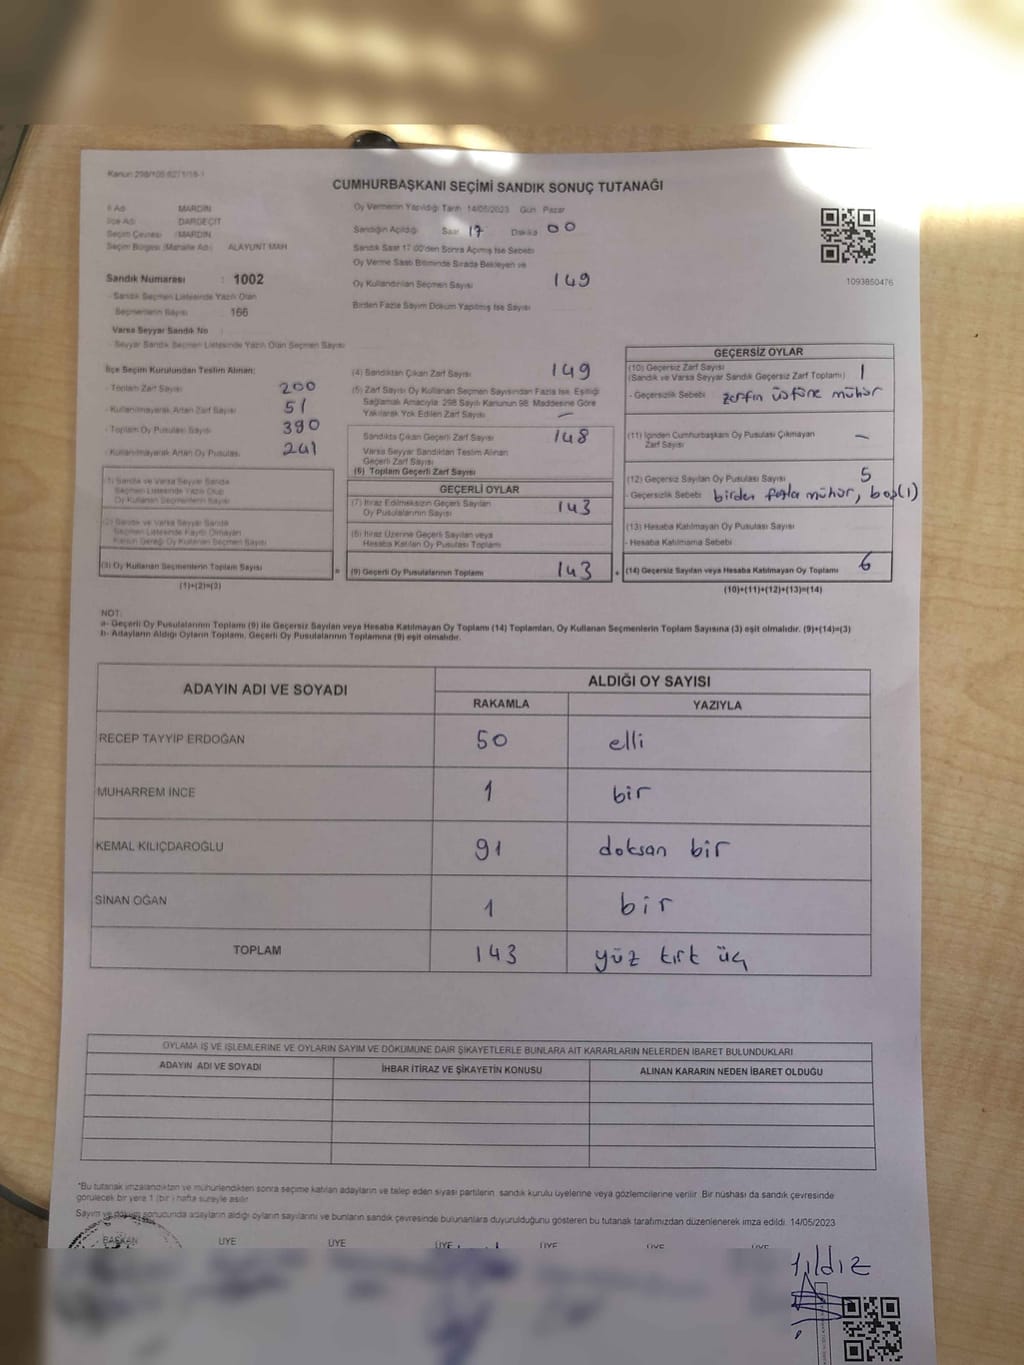 Kanun 298/105 6271/16-1
CUMHURBAŞKANI SEÇİMİ SANDIK SONUÇ TUTANAĞI
İl Adı : MARDİN
İlçe Adı : DARGEÇİT
Seçim Çevresi : MARDİN
Seçim Bölgesi (Mahalle Adı) : ALAYUNT MAH
Sandık Numarası : 1002
- Sandık Seçmen Listesinde Yazılı Olan
Seçmenlerin Sayısı : 166
Varsa Seyyar Sandık No
- Seyyar Sandık Seçmen Listesinde Yazılı Olan Seçmen Sayısı
Oy Vermenin Yapıldığı Tarih 14/05/2023 Gün Pazar
Sandığın Açıldığı Saat 17 Dakika 00
Sandık Saat 17.00'den Sonra Açılmış İse Sebebi
Oy Verme Saati Bitiminde Sırada Bekleyen ve
Oy Kullandırılan Seçmen Sayısı 149
Birden Fazla Sayım Döküm Yapılmış İse Sayısı
1093850476
İlçe Seçim Kurulundan Teslim Alınan;
- Toplam Zarf Sayısı 200
- Kullanılmayarak Artan Zarf Sayısı 51
- Toplam Oy Pusulası Sayısı 390
- Kullanılmayarak Artan Oy Pusulası 241
(1) Sandık ve Varsa Seyyar Sandık
Seçmen Listesinde Yazılı Olup
Oy Kullanan Seçmenlerin Sayısı
(2) Sandık ve Varsa Seyyar Sandık
Seçmen Listesinde Kaydı Olmayan
Kanun Gereği Oy Kullanan Seçmen Sayısı
(3) Oy Kullanan Seçmenlerin Toplam Sayısı
(1)+(2)=(3)
(4) Sandıktan Çıkan Zarf Sayısı 149
(5) Zarf Sayısı Oy Kullanan Seçmen Sayısından Fazla İse, Eşitliği
Sağlamak Amacıyla 298 Sayılı Kanunun 98. Maddesine Göre
Yakılarak Yok Edilen Zarf Sayısı —
Sandıkta Çıkan Geçerli Zarf Sayısı 148
Varsa Seyyar Sandıktan Teslim Alınan
Geçerli Zarf Sayısı
(6) Toplam Geçerli Zarf Sayısı
GEÇERLİ OYLAR
(7) İtiraz Edilmeksizin Geçerli Sayılan
Oy Pusulalarının Sayısı 143
(8) İtiraz Üzerine Geçerli Sayılan veya
Hesaba Katılan Oy Pusulası Toplamı
= (9) Geçerli Oy Pusulalarının Toplamı 143
GEÇERSİZ OYLAR
(10) Geçersiz Zarf Sayısı 1
(Sandık ve Varsa Seyyar Sandık Geçersiz Zarf Toplamı)
- Geçersizlik Sebebi zarfın üstüne mühür
(11) İçinden Cumhurbaşkanı Oy Pusulası Çıkmayan
Zarf Sayısı —
(12) Geçersiz Sayılan Oy Pusulası Sayısı 5
Geçersizlik Sebebi birden fazla mühür, boş(1)
(13) Hesaba Katılmayan Oy Pusulası Sayısı
- Hesaba Katılmama Sebebi
+ (14) Geçersiz Sayılan veya Hesaba Katılmayan Oy Toplamı 6
(10)+(11)+(12)+(13)=(14)
NOT:
a- Geçerli Oy Pusulalarının Toplamı (9) ile Geçersiz Sayılan veya Hesaba Katılmayan Oy Toplamı (14) Toplamları, Oy Kullanan Seçmenlerin Toplam Sayısına (3) eşit olmalıdır. (9)+(14)=(3)
b- Adayların Aldığı Oyların Toplamı, Geçerli Oy Pusulalarının Toplamına (9) eşit olmalıdır.
ADAYIN ADI VE SOYADI ALDIĞI OY SAYISI
RAKAMLA YAZIYLA
RECEP TAYYİP ERDOĞAN 50 elli
MUHARREM İNCE 1 bir
KEMAL KILIÇDAROĞLU 91 doksan bir
SİNAN OĞAN 1 bir
TOPLAM 143 yüz kırk üç
OYLAMA İŞ VE İŞLEMLERİNE VE OYLARIN SAYIM VE DÖKÜMÜNE DAİR ŞİKAYETLERLE BUNLARA AİT KARARLARIN NELERDEN İBARET BULUNDUKLARI
ADAYIN ADI VE SOYADI İHBAR İTİRAZ VE ŞİKAYETİN KONUSU ALINAN KARARIN NEDEN İBARET OLDUĞU
*Bu tutanak imzalandıktan ve mühürlendikten sonra seçime katılan adayların ve talep eden siyasi partilerin, sandık kurulu üyelerine veya gözlemcilerine verilir. Bir nüshası da sandık çevresinde
görülecek bir yere 1 (bir) hafta süreyle asılır.
Sayım ve döküm sonucunda adayların aldığı oyların sayılarını ve bunların sandık çevresinde bulunanlara duyurulduğunu gösteren bu tutanak tarafımızdan düzenlenerek imza edildi. 14/05/2023
BAŞKAN ÜYE ÜYE ÜYE ÜYE ÜYE ÜYE
Yıldız